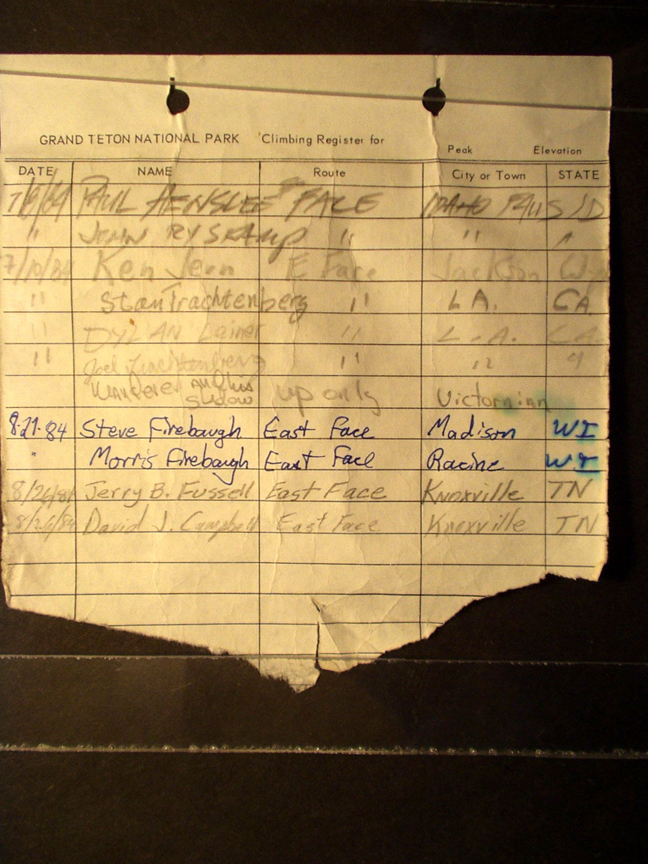 GRAND TETON NATIONAL PARK Climbing Register for
Peak Elevation
DATE NAME Route City or Town STATE
7/8/84 PAUL AENSLEE FACE IDAHO FALLS ID
" JOHN RYSKAMP " " "
7/10/84 Ken Jern E Face Jackson
" Stan Trachtenberg " L.A. CA.
" DYLAN " L.A. CA
" Joel Trachtenberg " " "
Wanderer and his Shadow up only Victor
8.21.84 Steve Firebaugh East Face Madison WI
" Morris Firebaugh East Face Racine WI
8/26/84 Jerry B. Fussell East Face Knoxville TN
8/26/84 David J. Campbell East Face Knoxville TN